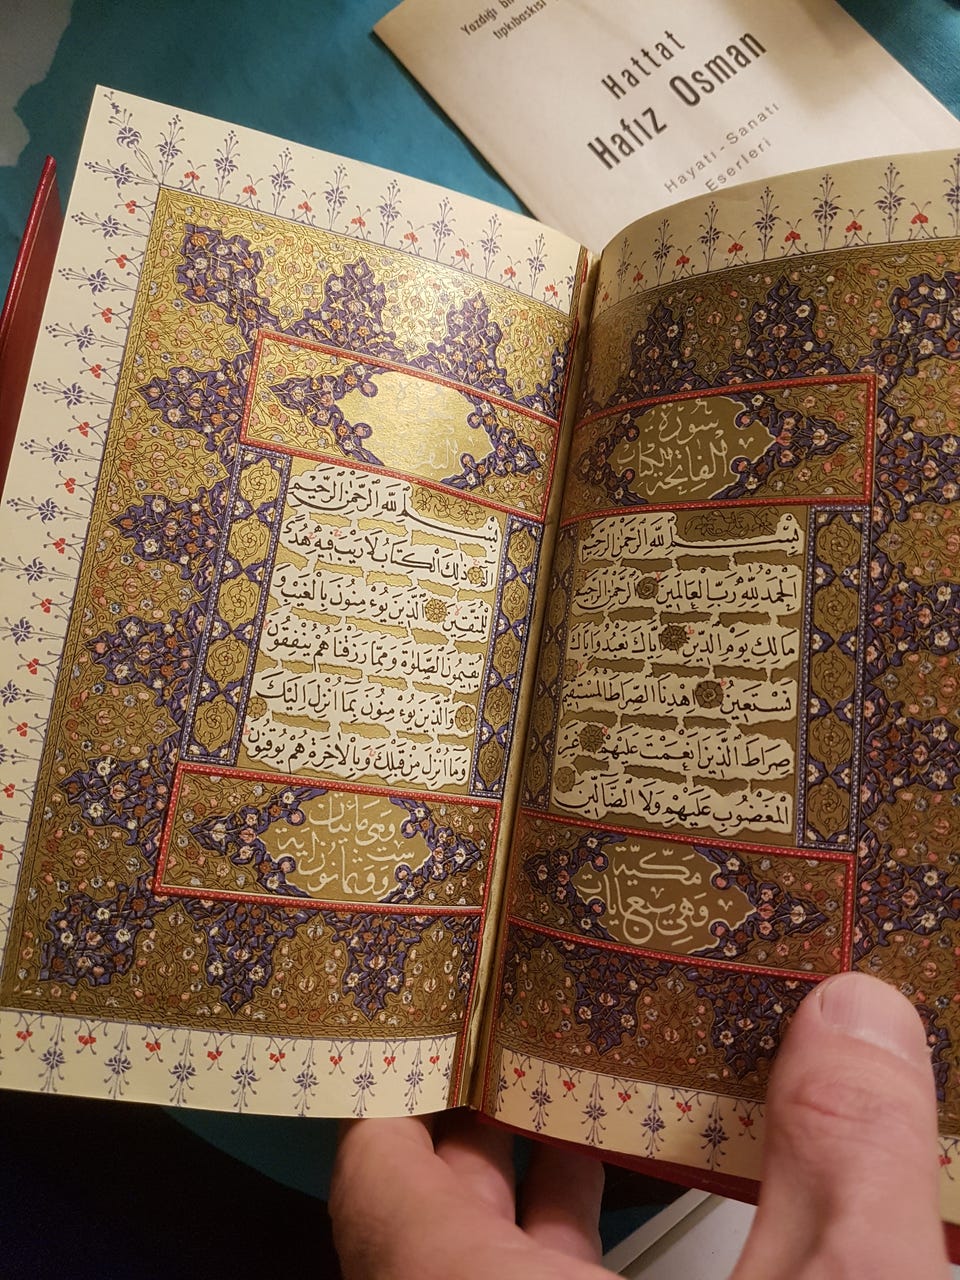 Yazdığı bi
tıpkıbaskısı
Hattat
Hafız Osman
Hayatı - Sanatı
Eserleri
سورة
الفاتحة الكتاب
بسم الله الرحمن الرحيم
الحمد لله رب العالمين الرحمن الرحيم
مالك يوم الدين اياك نعبد واياك
نستعين اهدنا الصراط المستقيم
صراط الذين انعمت عليهم غير
المغضوب عليهم ولا الضالين
مكية
وهي سبع ايات
بسم الله الرحمن الرحيم
الم ذلك الكتاب لا ريب فيه هدى
للمتقين الذين يؤمنون بالغيب و
يقيمون الصلوة ومما رزقناهم ينفقون
والذين يؤمنون بما انزل اليك
وما انزل من قبلك وبالاخرة هم يوقنون
وهي مايتان
ست وثمانون اية